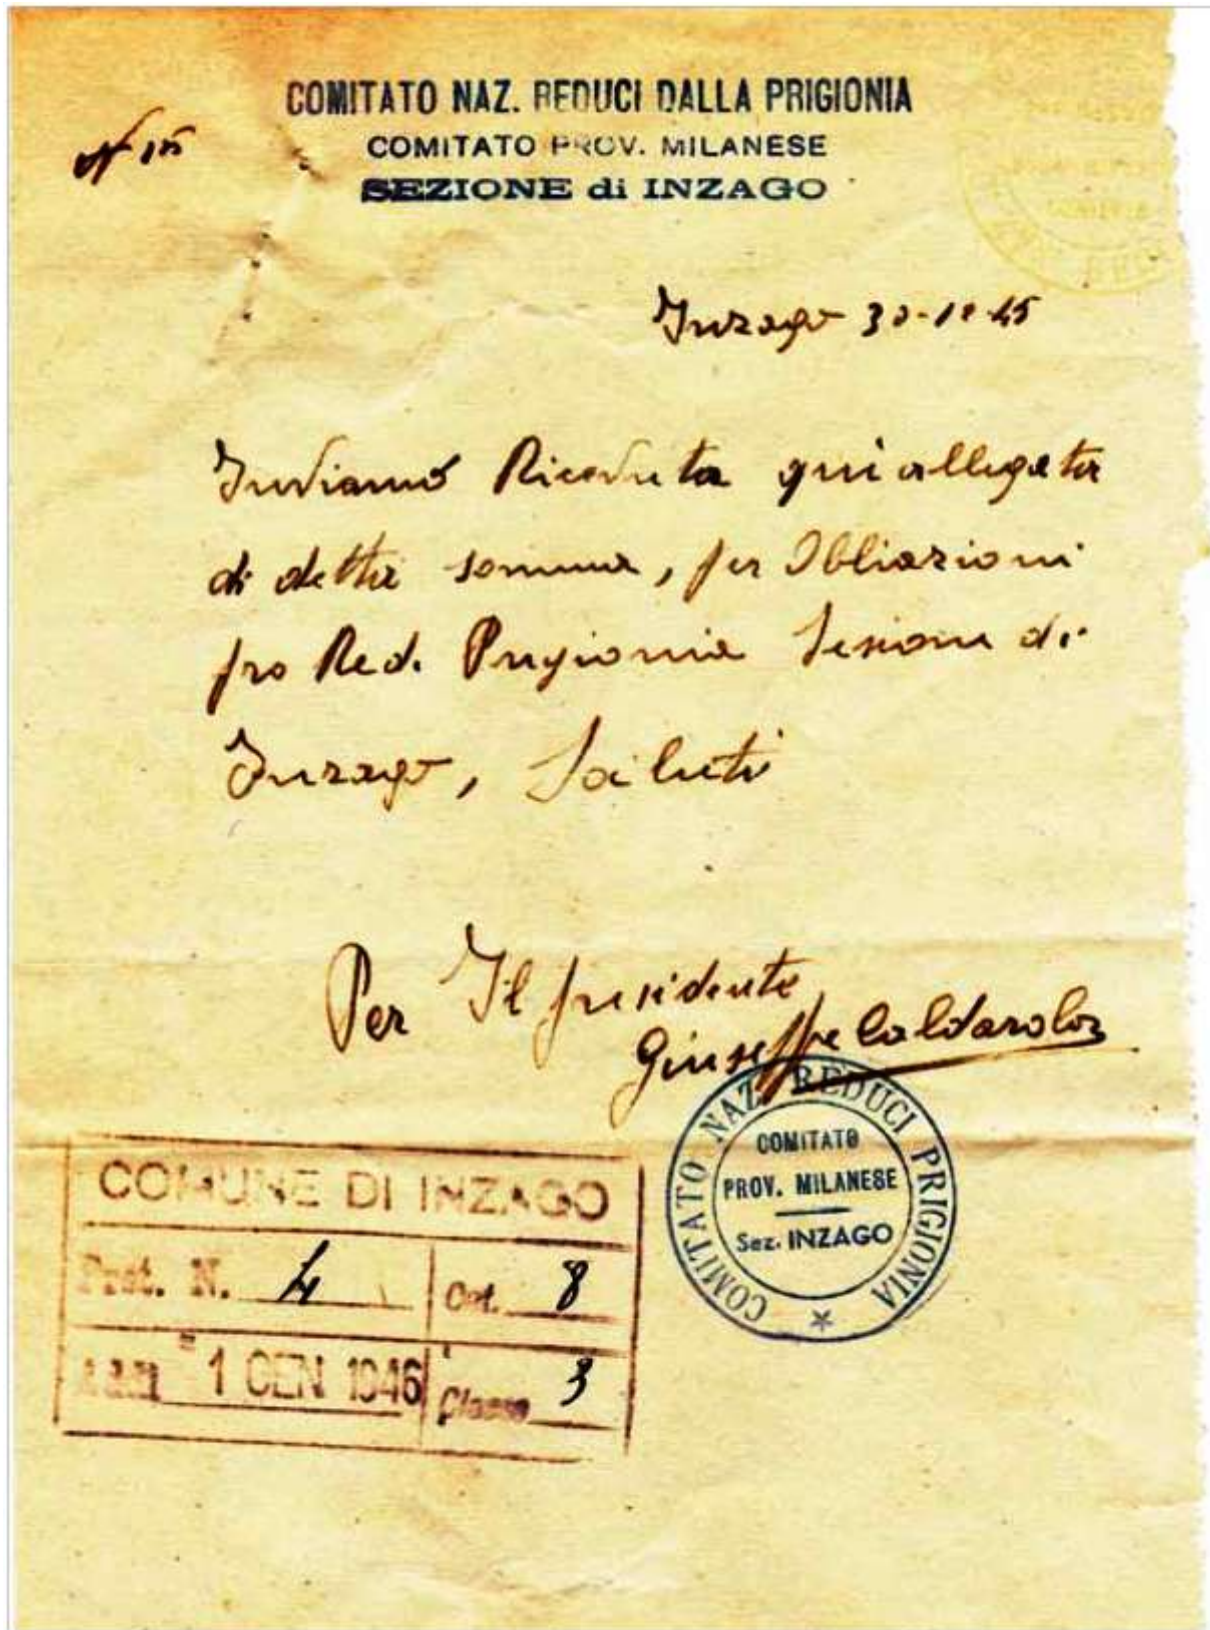 COMITATO NAZ. REDUCI DALLA PRIGIONIA
COMITATO PROV. MILANESE
SEZIONE di INZAGO
N 15
Inzago 30-12-45
Inviamo Ricevuta qui allegata
di detta somma, per Obliazioni
pro Red. Prigionia Sezione di
Inzago, Saluti
Per Il presidente
Giuseppe Caldarola
COMITATO NAZ. REDUCI PRIGIONIA
COMITATO
PROV. MILANESE
Sez. INZAGO
COMUNE DI INZAGO
Prot. N. 4 Cat. 8
1 GEN 1946 Classe 3